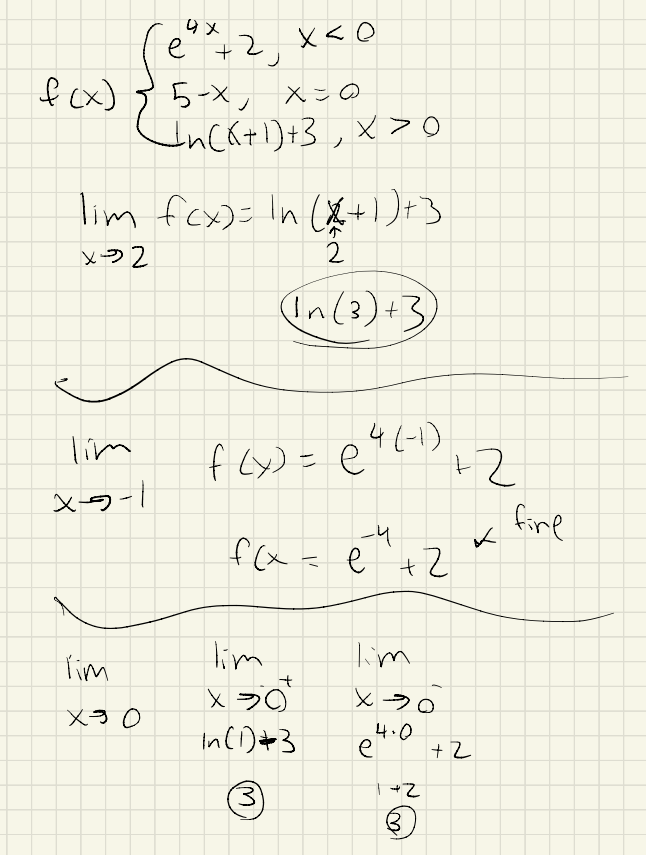 f(x) { e^4x + 2, x < 0
5-x, x = 0
ln(x+1)+3, x > 0
lim f(x) = ln(x+1)+3
x→2 ↑
2
ln(3)+3
lim f(x) = e^4(-1) + 2
x→-1
f(x = e^-4 + 2 ✓ fine
lim lim lim
x→0 x→0^+ x→0^-
ln(1)+3 e^4·0 + 2
1+2
3 3